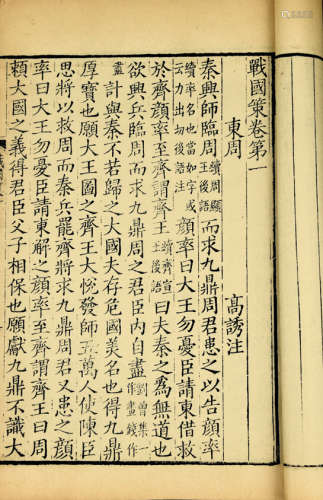 戰國策卷第一
東周　高誘注
秦興師臨周續顯王後語而求九鼎周君患之以告顔率
續率名也當如字或云力出切後語注顔率曰大王勿憂臣請東借救
於齊顔率至齊謂齊王續齊宣王後語曰夫秦之爲無道也
欲興兵臨周而求九鼎周之君臣内自盡劉曾集一作畫錢作
盡計與秦不若歸之大國夫存危國美名也得九鼎
厚寶也願大王圖之齊王大悅發師五萬人使陳臣
思將以救周而秦兵罷齊將求九鼎周君又患之顔
率曰大王勿憂臣請東解之顔率至齊謂齊王曰周
賴大國之義得君臣父子相保也願獻九鼎不識大